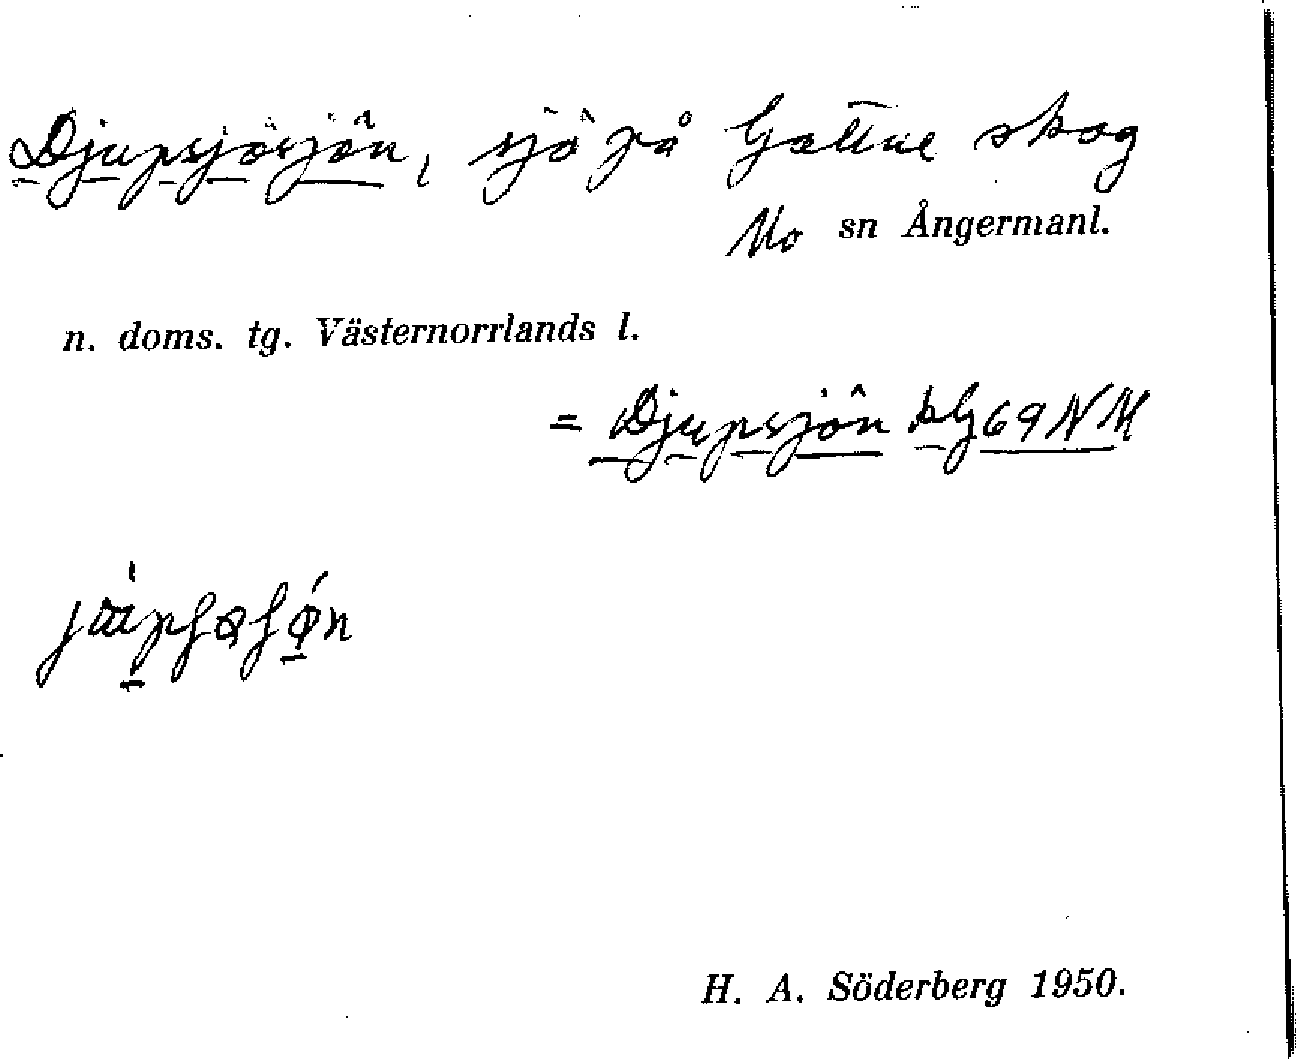 Djupsjösjön, sjö på Gallne skog
Mo sn Ångermanl.
n. doms. tg. Västernorrlands l.
= Djupsjön bG69NM
H. A. Söderberg 1950.